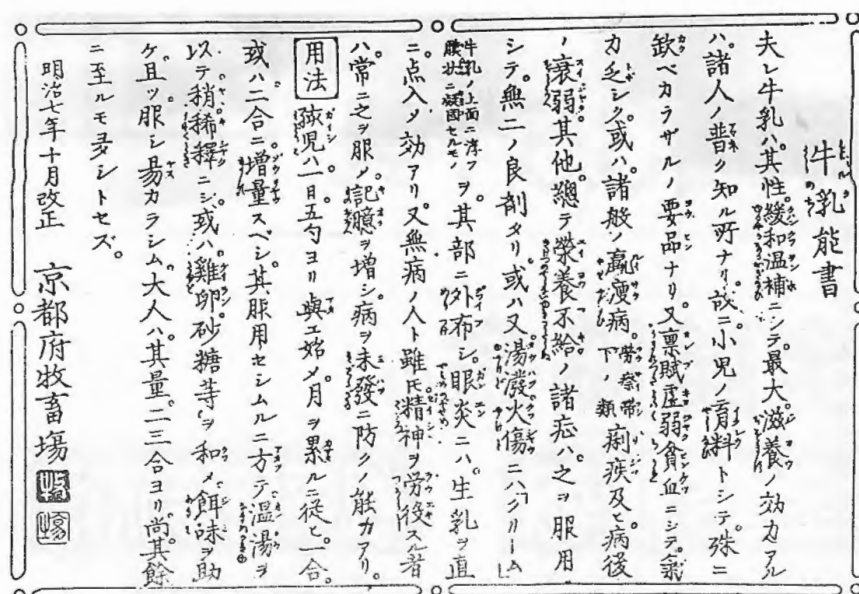 牛乳能書
夫レ牛乳ハ其性緩和温補ニシテ最大滋養ノ効力アル
ハ諸人ノ普ク知ル所ナリ故ニ小児ノ育料トシテ殊ニ
欽ベカラザルノ要品ナリ又禀賦虚弱貧血ニシテ氣
力乏シク或ハ諸般ノ羸痩病 労瘵帯下ノ類 痢疾及ヒ病後
ノ衰弱其他總テ榮養不給ノ諸症ハ之ヲ服用
シテ無二ノ良剤タリ或ハ又湯潑火傷ニハ「クリーム」
牛乳ノ上面ニ浮ブ膜状ニ凝固セルモノ ヲ其部ニ外布シ眼炎ニハ生乳ヲ直
ニ点入ノ効アリ又無病ノ人ト雖𪜈精神ヲ労役スル者
ハ常ニ之ヲ服ノ記臆ヲ増シ病ヲ未發ニ防クノ能力アリ。
用法 孩児ハ一日五勺ヨリ與エ始メ月ヲ累ルニ従ヒ一合
或ハ二合ニ増量スベシ其服用セシムルニ方テ温湯ヲ
以テ稍稀釋ニシ或ハ雞卵砂糖等ヲ和メ餌味ヲ助
ケ且ツ服シ易カラシム大人ハ其量二三合ヨリ尚其餘
ニ至ルモ多シトセズ。
明治七年十月改正 京都府牧畜場